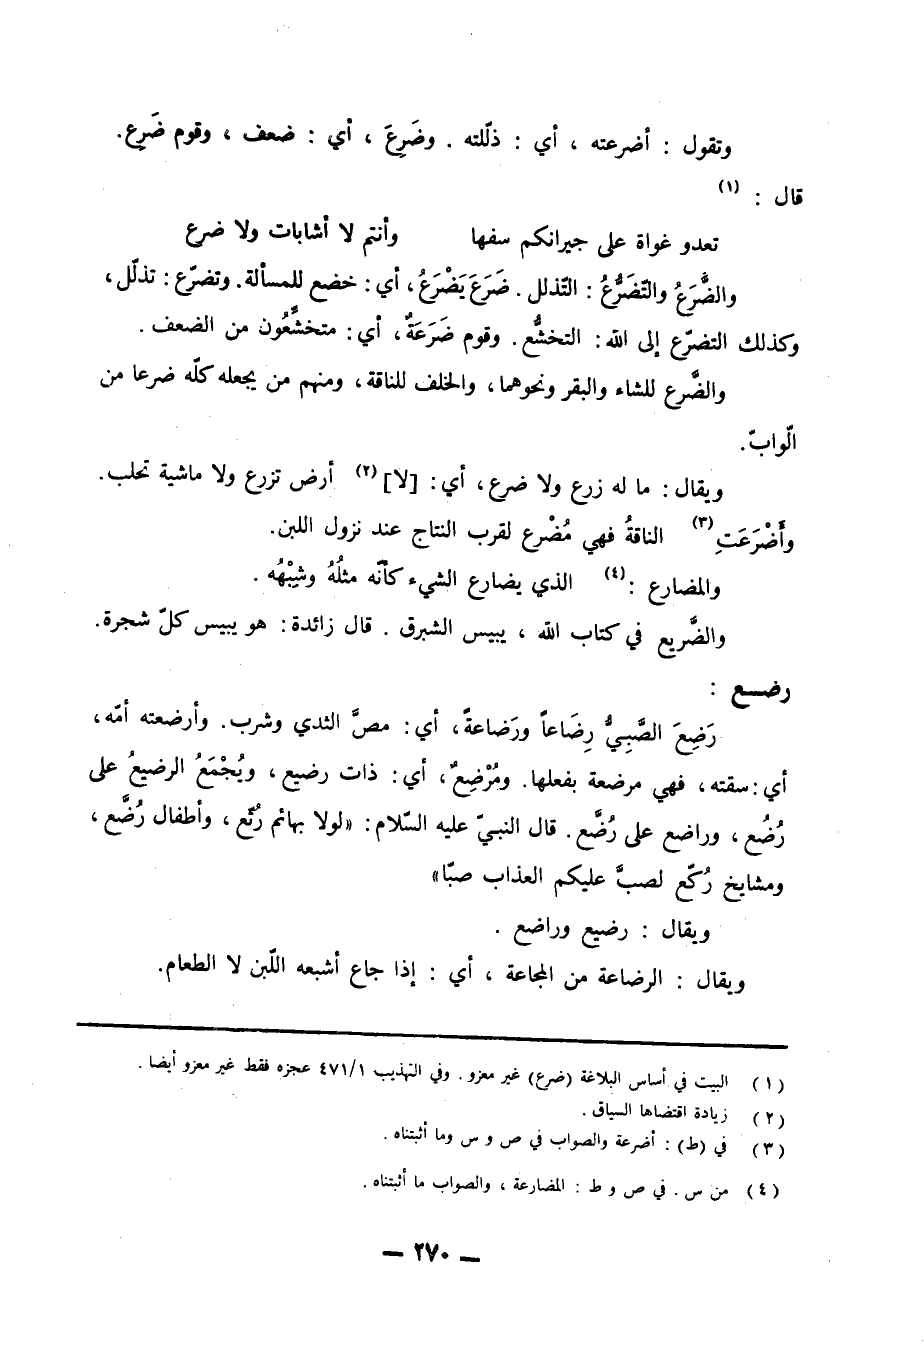 وتقول : أضرعته ، أي : ذلّلته . وضَرِعَ ، أي : ضعف ، وقوم ضَرِع.
قال : (١)
تعدو غواة على جيرانكم سفها وأنتم لا أشابات ولا ضرع
والضَّرَعُ والتّضَرُّعُ : التّذلل . ضَرَعَ يَضْرَعُ ، أي : خضع للمسألة. وتضرّع : تذلّل ،
وكذلك التضرّع إلى الله : التخشُّع . وقوم ضَرَعَةٌ ، أي : متخشِّعُون من الضعف .
والضَّرع للشاء والبقر ونحوهما، والخلف للناقة، ومنهم من يجعله كلّه ضرعا من
الّوابّ.
ويقال : ما له زرع ولا ضرع ، أي : [لا] (٢) أرض تزرع ولا ماشية تحلب.
وأَضْرَعَتِ (٣) الناقةُ فهي مُضْرع لقرب النتاج عند نزول اللبن.
والمضارع : (٤) الذي يضارع الشيء كأنّه مثلُهُ وشِبْهُه .
والضَّريع في كتاب الله ، يبيس الشبرق . قال زائدة : هو يبيس كلّ شجرة.
رضـع :
رَضِعَ الصَّبِيُّ رِضَاعاً ورَضاعةً، أي : مصَّ الثدي وشرب. وأرضعته أمّه،
أي : سقته، فهي مرضعة بفعلها. ومُرْضِعٌ، أي : ذات رضيع ، ويُجْمَعُ الرضيعُ على
رُضُع ، وراضع على رُضَّع . قال النبيّ عليه السّلام : «لولا بهائم رُتَّع ، وأطفال رُضَّع ،
ومشايخ رُكّع لصبَّ عليكم العذاب صبّا»
ويقال : رضيع وراضع .
ويقال : الرضاعة من المجاعة ، أي : إذا جاع أشبعه اللّبن لا الطعام.
(١) البيت في أساس البلاغة (ضرع) غير معزو . وفي التهذيب ٤٧١/١ عجزه فقط غير معزو أيضا .
(٢) زيادة اقتضاها السياق .
(٣) في (ط) : أضرعة والصواب في ص و س وما أثبتناه .
(٤) من س . في ص و ط : المضارعة ، والصواب ما أثبتناه .
— ٢٧٠ —